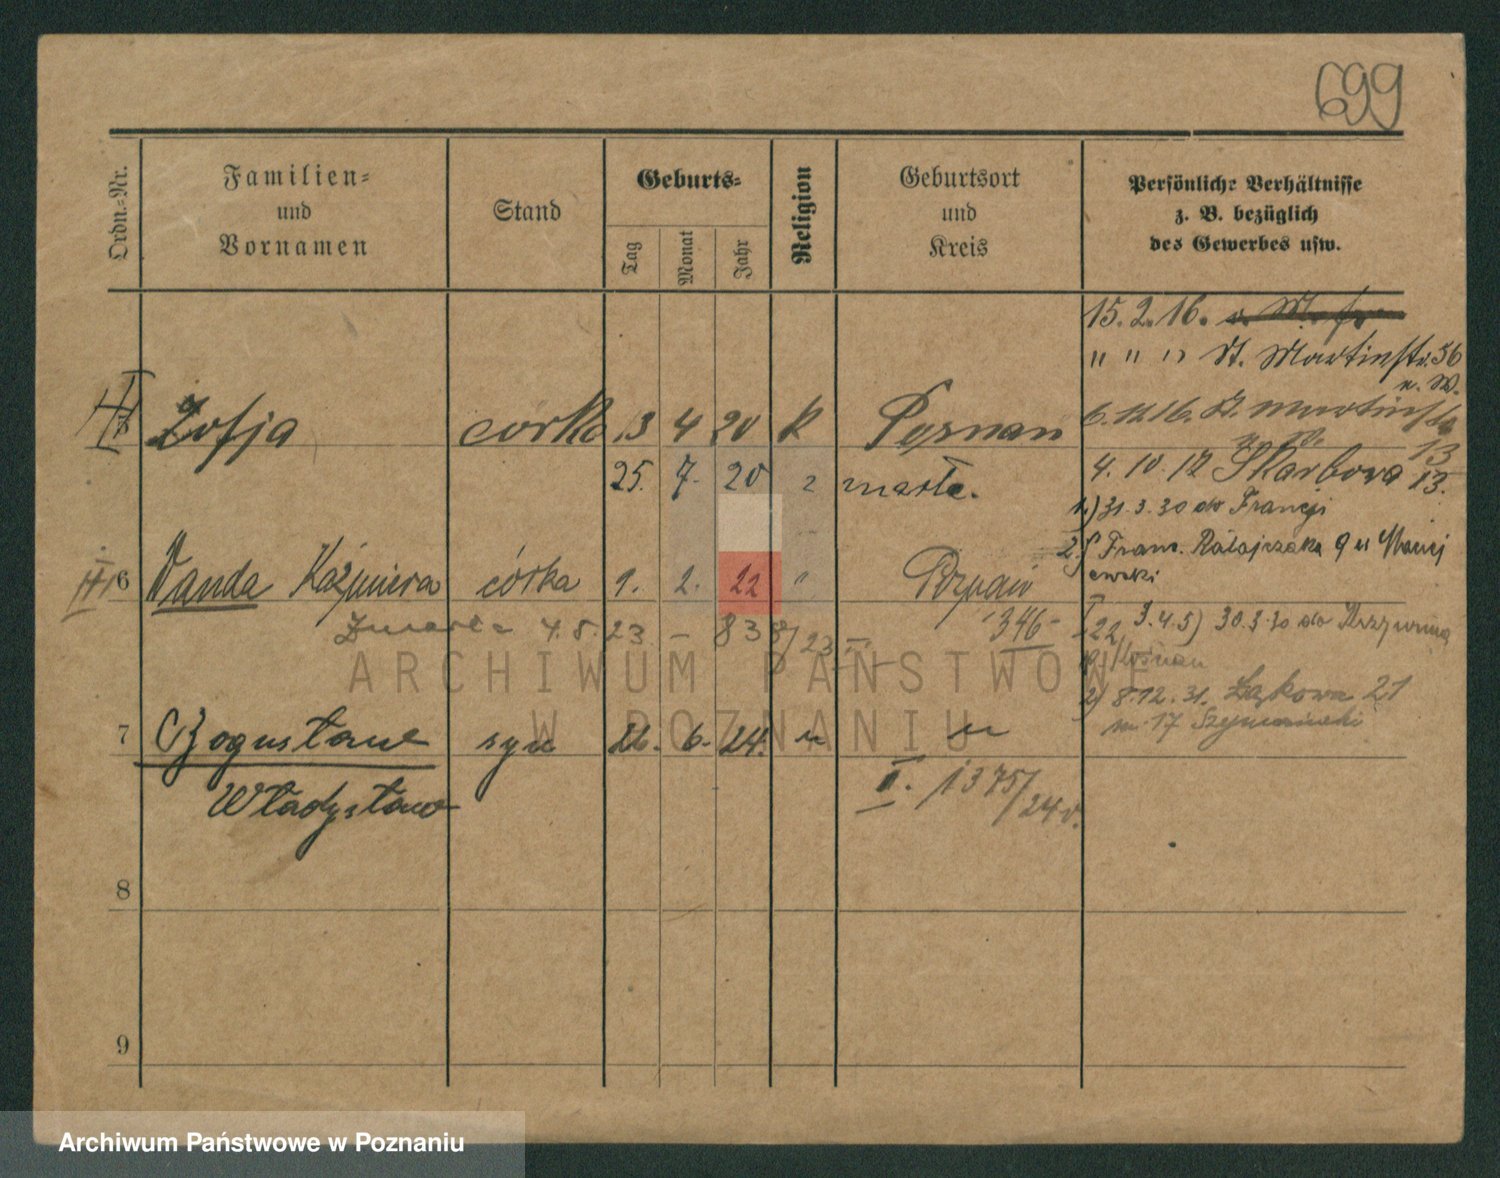 699
Ordn.-Nr.
Familien-
und
Vornamen
Stand
Geburts-
Tag
Monat
Jahr
Religion
Geburtsort
und
Kreis
Persönliche Verhältnisse
z. B. bezüglich
des Gewerbes usw.
15. 2. 16.
" " " St. Martinstr. 56
n. W.
Zofja córka 13 4 20 k Poznan
6. 12 16. St. Martinstr.
13
25. 7. 20 zmarła.
4. 10. 17 Skarbowa 13.
1.) 31. 3. 30 do Francji
2.) Franc. Ratajczaka 9 u Maciej
ewski
6 Wanda Kaźmiera córka 1. 2. 22 " Poznań
Zmarła 4. 8. 23 – 838/23
346
22
3.4.5) 30.3.30 do Krzywina
Kościan
2) 8.12.31. Łąkowa 21
m 17 Szymański
7 Bogusław syn 26. 6. 24. " "
Władysław
I. 1375/24
8
9
ARCHIWUM PAŃSTWOWE
W POZNANIU
Archiwum Państwowe w Poznaniu